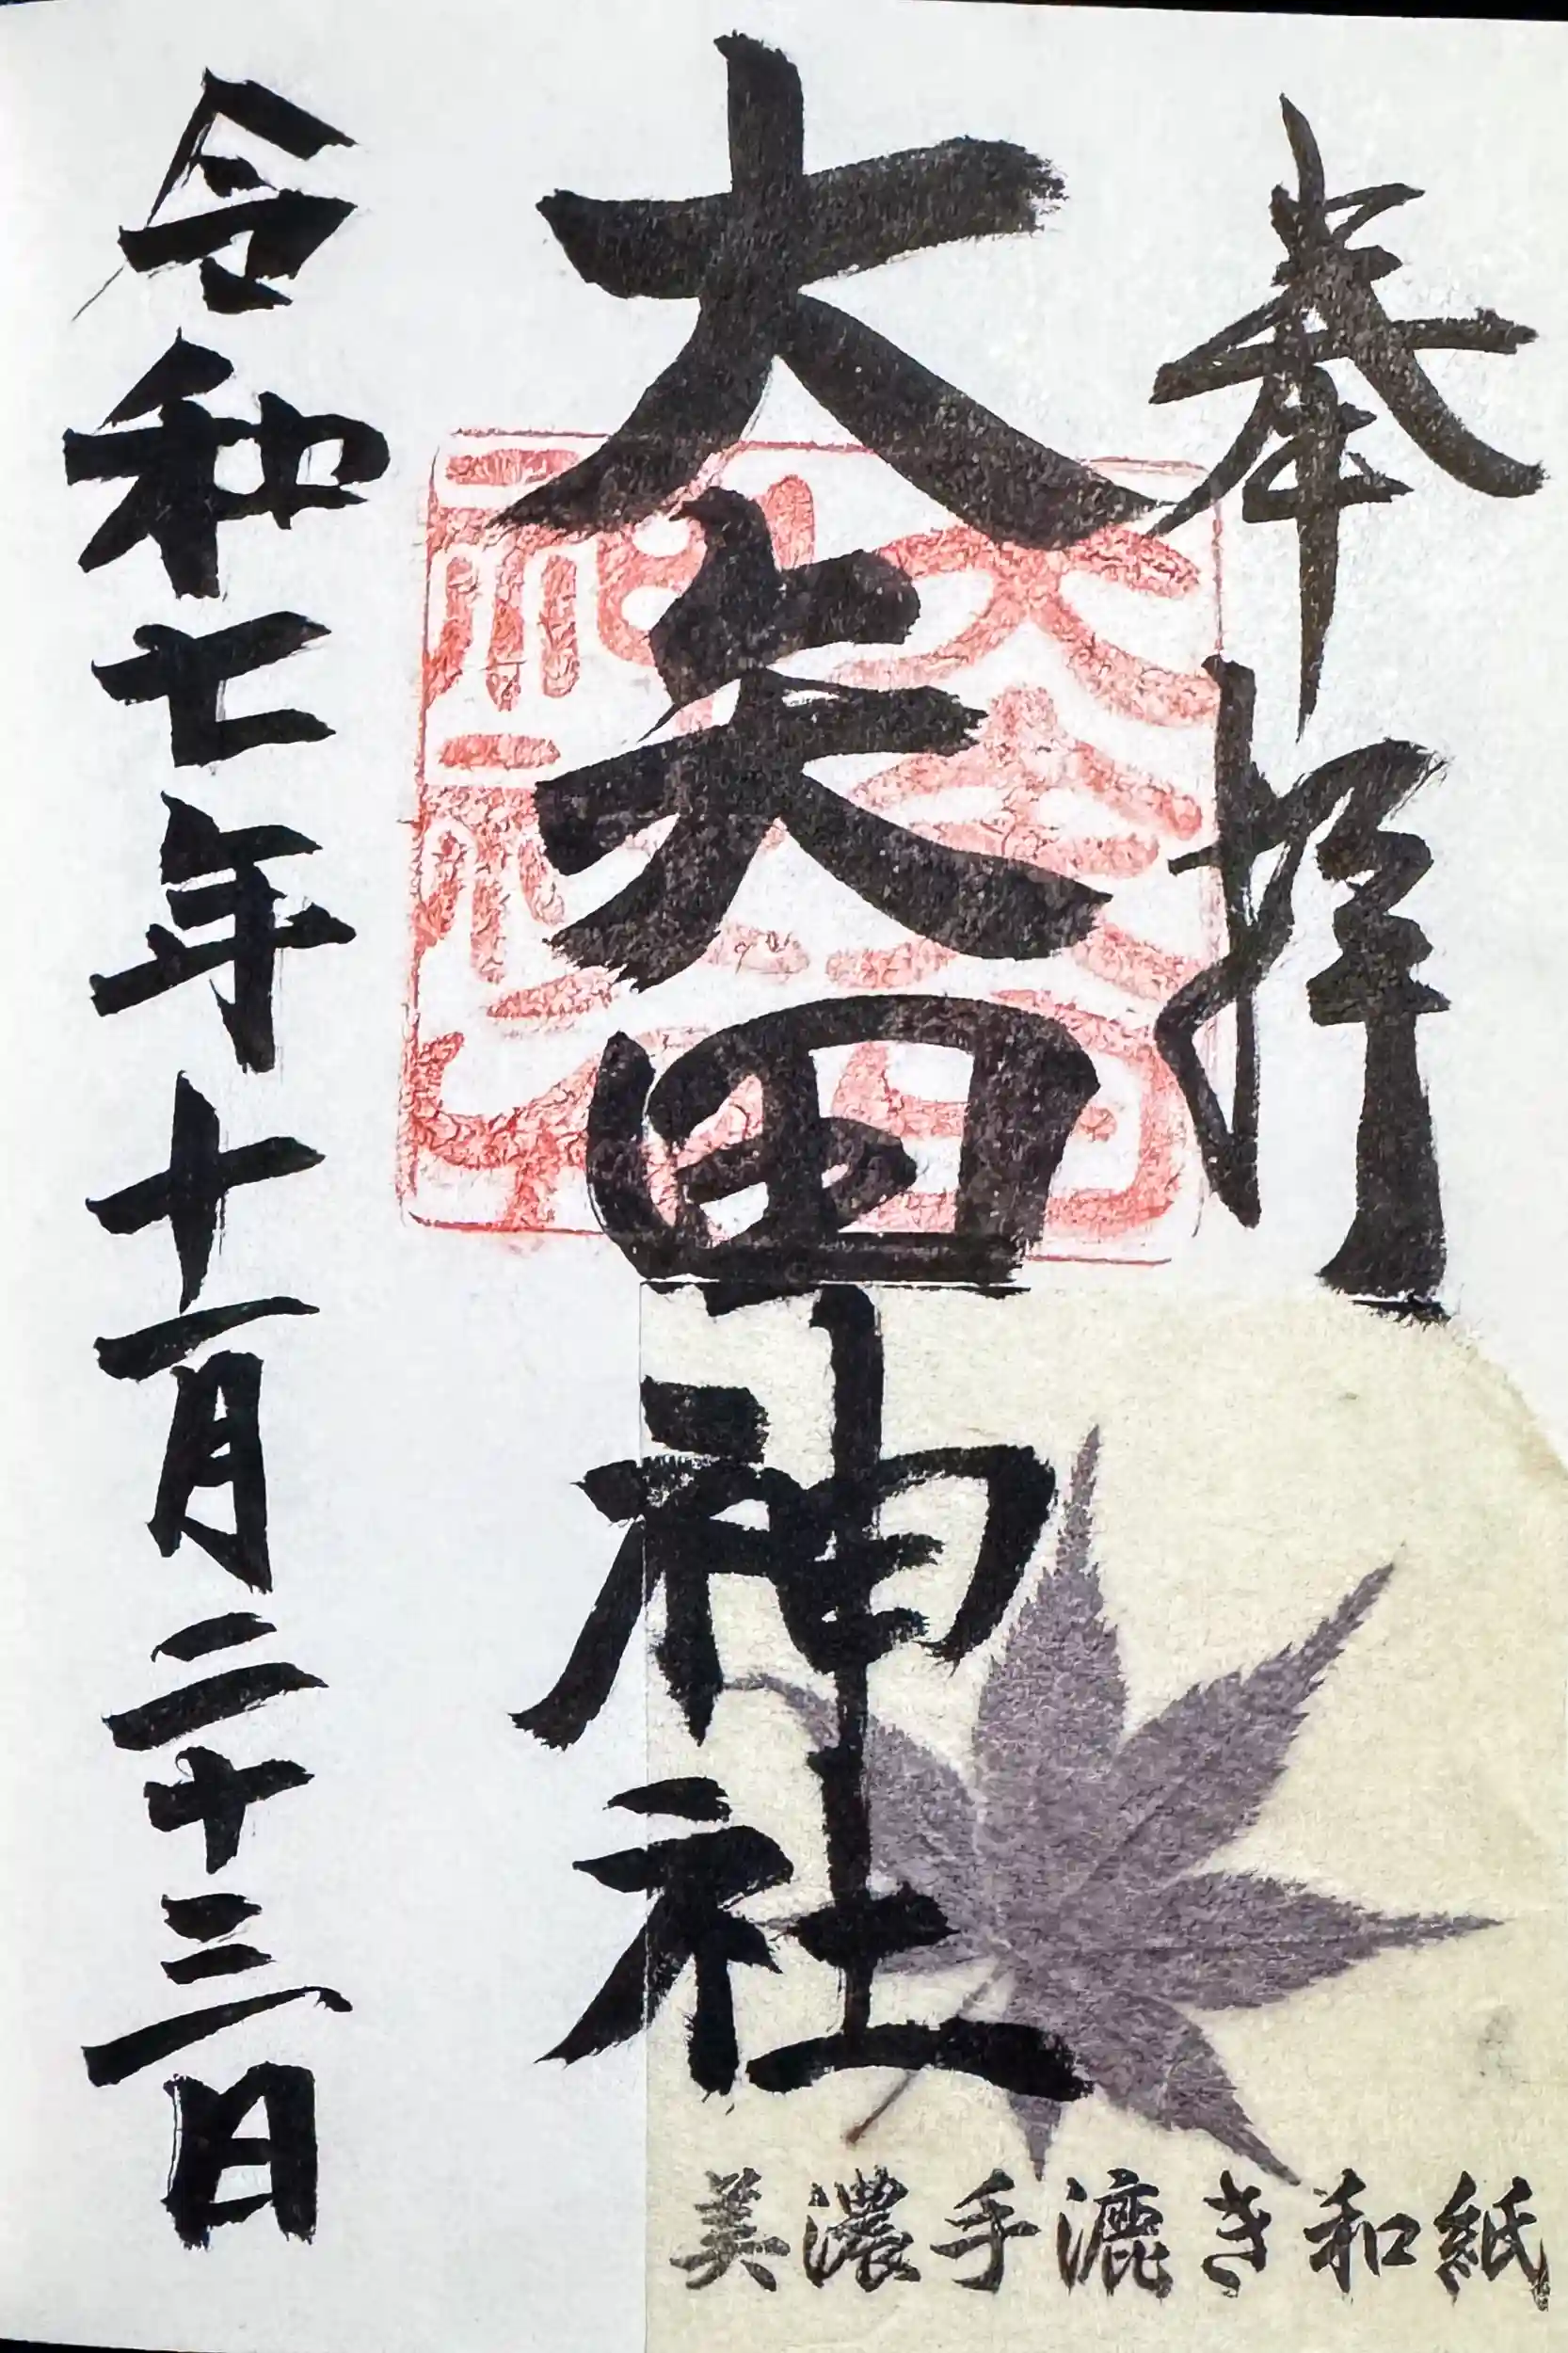 奉拝
大矢田神社
令和七年十一月二十三日
美濃手漉き和紙